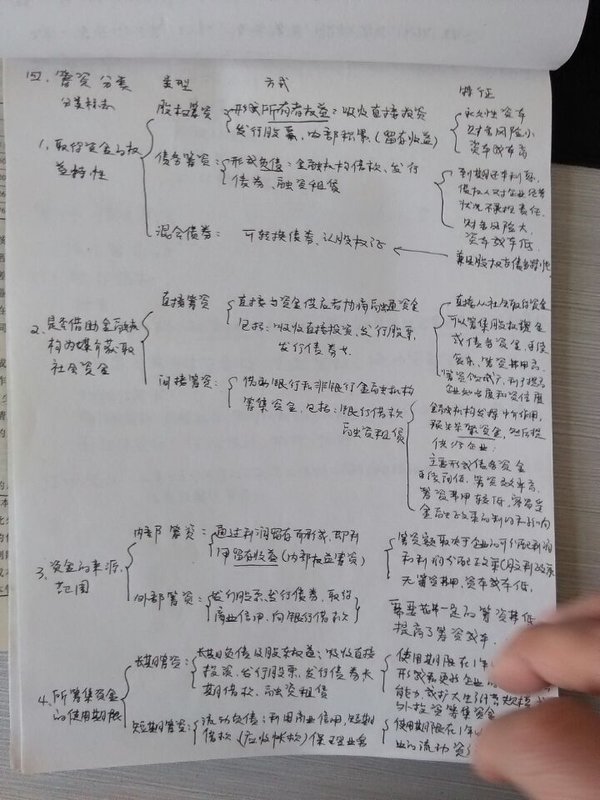 四、筹资分类 类型 方式 特征
分类标志
股权筹资 形成所有者权益：吸收直接投资
发行股票，内部积累（留存收益）
永久性资本
财务风险小
资本成本高
1、取得资金的权
益特性
债务筹资： 形成负债：金融机构借款、发行
债券、融资租赁
到期还本利息，
债权人对企业经营
状况不承担责任，
财务风险大，
资本成本低
混合债券： 可转换债券、认股权证
兼具股权与债务特性
直接筹资 直接与资金供应者协商融通资金
包括：吸收直接投资、发行股票，
发行债券
直接从社会取得资金
可以筹集股权资金
或债务资金，手续
复杂，筹资费用高，
2、是否借助金融机
构为媒介获取
社会资金
间接筹资： 借助银行和非银行金融机构
筹集资金，包括：银行借款
融资租赁
金融机构发挥中介作用，
主要形成债务资金
手续简便，筹资效率高，
筹资费用较低，
3、资金的来源
范围
内部筹资： 通过利润留存而形成，即利
用留存收益（内部权益筹资）
筹资额取决于企业的可分配利润
和利润分配政策（股利政策
无筹资费用，资本成本低，
外部筹资： 发行股票，发行债券，取得
商业信用，向银行借款
需要花费一定的筹资费
提高了筹资成本
4、所筹集资金
的使用期限
长期筹资： 长期负债及股东权益：吸收直接
投资，发行股票，发行债券长
期借款、融资租赁
使用期限在1年
能力，或扩大生产
外投资筹集资金
短期筹资： 流动负债：利用商业信用，短期
借款（应收帐款）保理业务
使用期限在1年
业的流动资